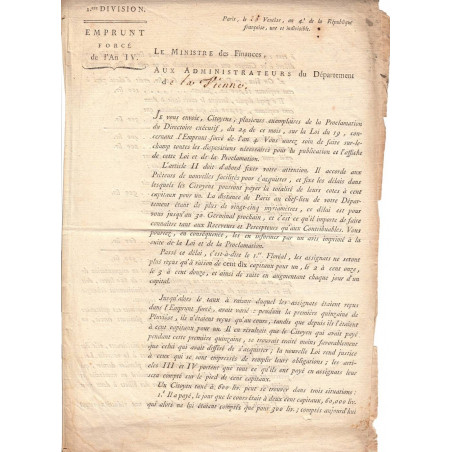 2.me DIVISION.
EMPRUNT
FORCÉ
de l'An IV.
Paris, le Ventôse, an 4.e de la République
française, une et indivisible.
LE MINISTRE des Finances,
AUX ADMINISTRATEURS du Département
de la Vienne.
JE vous envoie, Citoyens, plusieurs exemplaires de la Proclamation
du Directoire exécutif, du 29 de ce mois, sur la Loi du 19, con-
cernant l'Emprunt forcé de l'an 4. Vous aurez soin de faire sur-
le-champ toutes les dispositions nécessaires pour la publication et l'affiche
de cette Loi et de la Proclamation.
L'article II doit d'abord fixer votre attention. Il accorde aux
Prêteurs de nouvelles facilités pour s'acquitter, et fixe les délais dans
lesquels les Citoyens pourront payer la totalité de leurs cotes à cent
capitaux pour un. La distance de Paris au chef-lieu de votre Dépar-
tement étant de plus de vingt-cinq myriamètres, ce délai est pour
vous jusqu'au 30 Germinal prochain, et c'est ce qu'il importe de faire
connaître tant aux Receveurs et Percepteurs qu'aux Contribuables. Vous
pourrez, en conséquence, les en informer par un avis imprimé à la
suite de la Loi et de la Proclamation.
Passé ce délai, c'est-à-dire le 1.er Floréal, les assignats ne seront
plus reçus qu'à raison de cent dix capitaux pour un, le 2 à cent onze,
le 3 à cent douze, et ainsi de suite en augmentant chaque jour d'un
capital.
Jusqu'alors le taux à raison duquel les assignats étaient reçus
dans l'Emprunt forcé, avait varié : pendant la première quinzaine de
Pluviôse, ils n'étaient reçus qu'au cours, tandis que depuis ils l'étaient
à cent capitaux pour un. Il en résultait que le Citoyen qui avait payé
pendant cette première quinzaine, se trouvait traité moins favorablement
que celui qui avait différé de s'acquitter ; la nouvelle Loi rend justice
à ceux qui se sont empressés de remplir leurs obligations ; les arti-
cles III et IV portent que tout ce qu'ils ont payé en assignats leur
sera compté sur le pied de cent capitaux.
Un Citoyen taxé à 600 liv. peut se trouver dans trois situations :
1.° Il a payé, le jour que le cours était à deux cent capitaux, 60,000 liv.
qui alors ne lui étaient comptés que pour 300 liv. ; comptés aujourd'hui